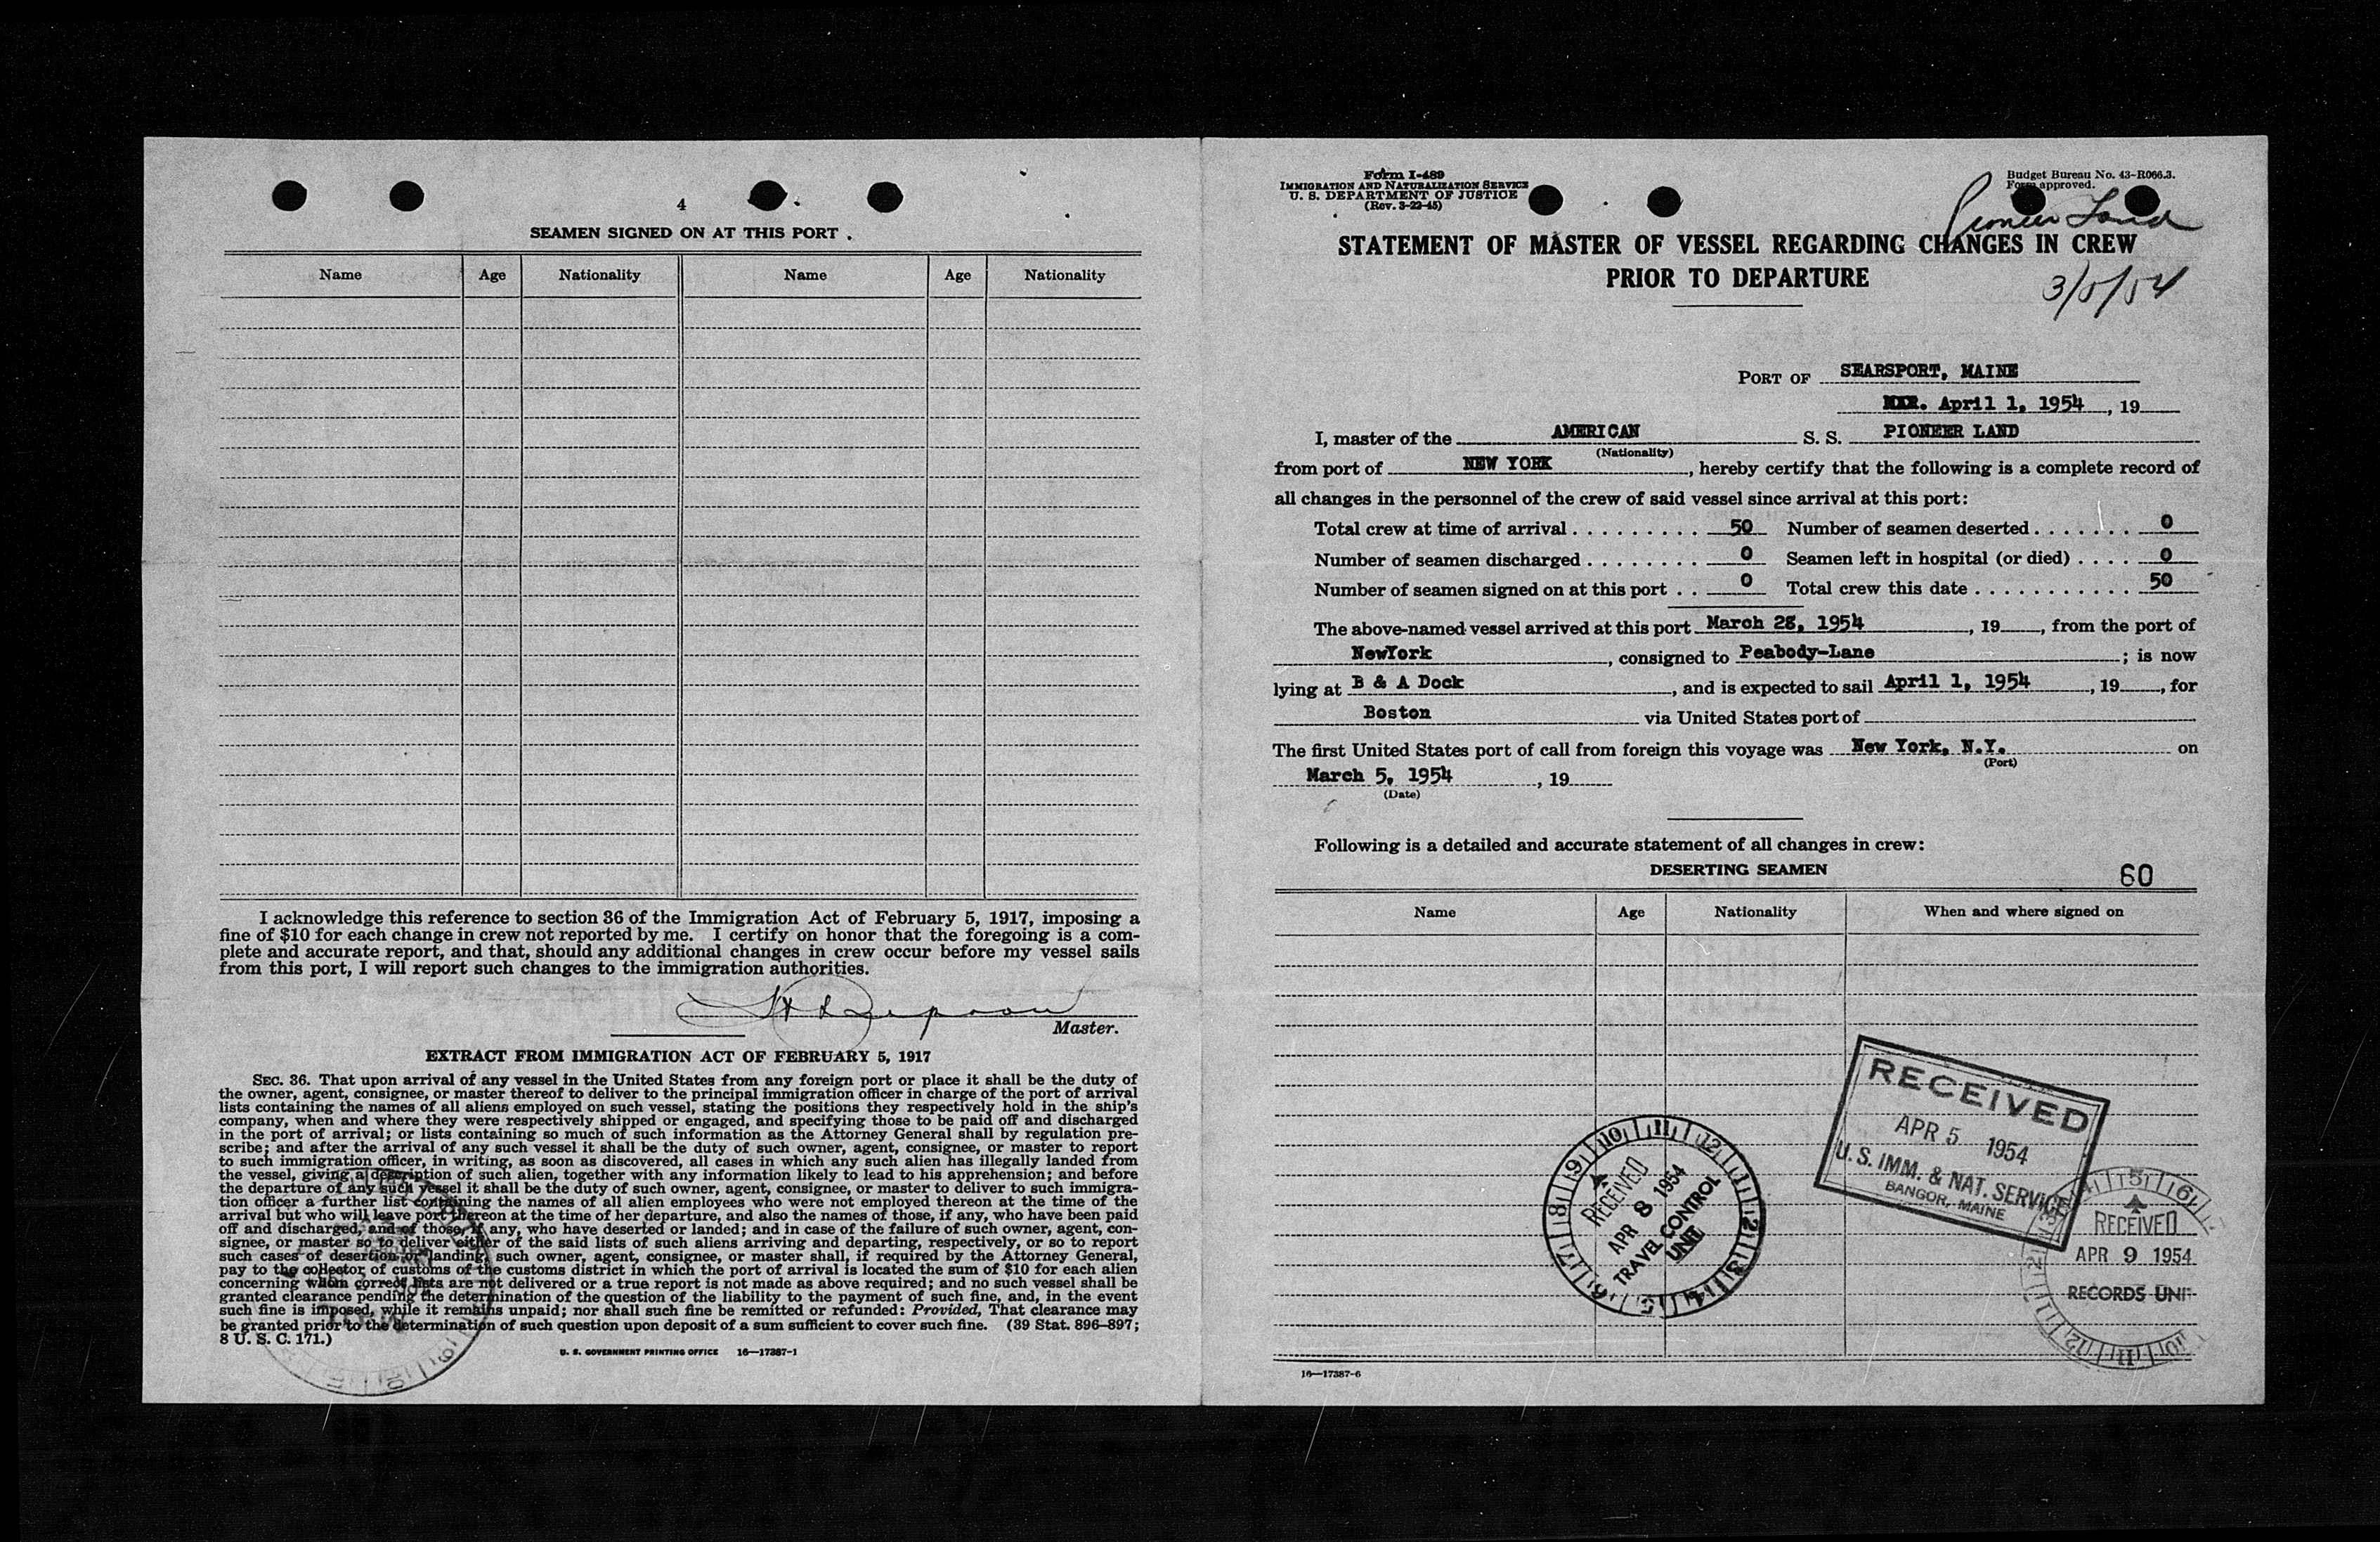 4
SEAMEN SIGNED ON AT THIS PORT .
Name Age Nationality Name Age Nationality
I acknowledge this reference to section 36 of the Immigration Act of February 5, 1917, imposing a
fine of $10 for each change in crew not reported by me. I certify on honor that the foregoing is a com-
plete and accurate report, and that, should any additional changes in crew occur before my vessel sails
from this port, I will report such changes to the immigration authorities.
Master.
EXTRACT FROM IMMIGRATION ACT OF FEBRUARY 5, 1917
SEC. 36. That upon arrival of any vessel in the United States from any foreign port or place it shall be the duty of
the owner, agent, consignee, or master thereof to deliver to the principal immigration officer in charge of the port of arrival
lists containing the names of all aliens employed on such vessel, stating the positions they respectively hold in the ship's
company, when and where they were respectively shipped or engaged, and specifying those to be paid off and discharged
in the port of arrival; or lists containing so much of such information as the Attorney General shall by regulation pre-
scribe; and after the arrival of any such vessel it shall be the duty of such owner, agent, consignee, or master to report
to such immigration officer, in writing, as soon as discovered, all cases in which any such alien has illegally landed from
the vessel, giving a description of such alien, together with any information likely to lead to his apprehension; and before
the departure of any such vessel it shall be the duty of such owner, agent, consignee, or master to deliver to such immigra-
tion officer a further list containing the names of all alien employees who were not employed thereon at the time of the
arrival but who will leave port thereon at the time of her departure, and also the names of those, if any, who have been paid
off and discharged, and of those, if any, who have deserted or landed; and in case of the failure of such owner, agent, con-
signee, or master so to deliver either of the said lists of such aliens arriving and departing, respectively, or so to report
such cases of desertion or landing, such owner, agent, consignee, or master shall, if required by the Attorney General,
pay to the collector of customs of the customs district in which the port of arrival is located the sum of $10 for each alien
concerning whom correct lists are not delivered or a true report is not made as above required; and no such vessel shall be
granted clearance pending the determination of the question of the liability to the payment of such fine, and, in the event
such fine is imposed, while it remains unpaid; nor shall such fine be remitted or refunded: Provided, That clearance may
be granted prior to the determination of such question upon deposit of a sum sufficient to cover such fine. (39 Stat. 896-897;
8 U. S. C. 171.)
U. S. GOVERNMENT PRINTING OFFICE 16—17387-1
Form I-489
IMMIGRATION AND NATURALIZATION SERVICE
U. S. DEPARTMENT OF JUSTICE
(Rev. 3-22-45)
Budget Bureau No. 43-R066.3.
Form approved.
Pioneer Land
STATEMENT OF MASTER OF VESSEL REGARDING CHANGES IN CREW
PRIOR TO DEPARTURE
3/5/54
PORT OF SEARSPORT, MAINE
April 1, 1954, 19
I, master of the AMERICAN S. S. PIONEER LAND
(Nationality)
from port of NEW YORK, hereby certify that the following is a complete record of
all changes in the personnel of the crew of said vessel since arrival at this port:
Total crew at time of arrival . . . . . . . . . 50 Number of seamen deserted . . . . . . . 0
Number of seamen discharged . . . . . . . . 0 Seamen left in hospital (or died) . . . . 0
Number of seamen signed on at this port . . 0 Total crew this date . . . . . . . . . . . . 50
The above-named vessel arrived at this port March 28, 1954, 19, from the port of
NewYork, consigned to Peabody-Lane; is now
lying at B & A Dock, and is expected to sail April 1, 1954, 19, for
Boston via United States port of
The first United States port of call from foreign this voyage was New York, N.Y. on
(Port)
March 5, 1954, 19
(Date)
Following is a detailed and accurate statement of all changes in crew:
DESERTING SEAMEN
60
Name Age Nationality When and where signed on
RECEIVED
APR 5 1954
U. S. IMM. & NAT. SERVICE
BANGOR, MAINE
RECEIVED
APR 8 1954
TRAVEL CONTROL
UNIT
RECEIVED
APR 9 1954
RECORDS UNIT
16—17387-6